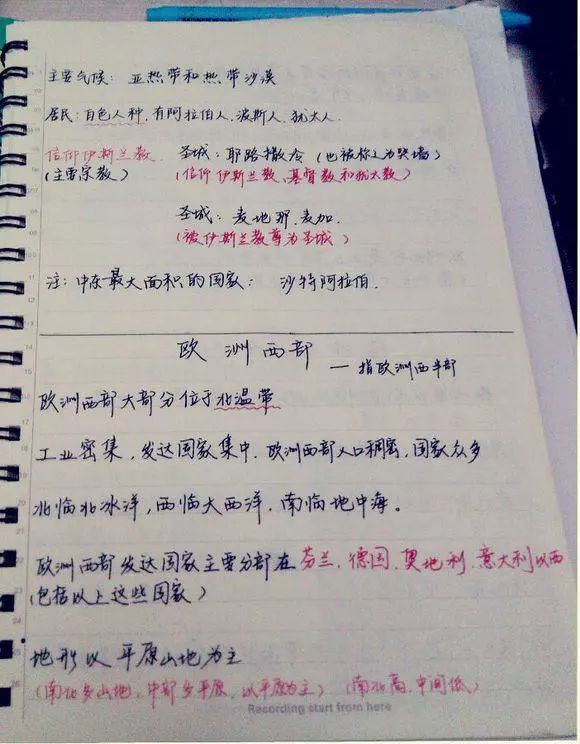 主要气候：亚热带和热带沙漠
居民：白色人种，有阿拉伯人、波斯人、犹太人
信仰伊斯兰教 圣城：耶路撒冷（也被称之为哭墙）
（主要宗教） （信仰伊斯兰教、基督教和犹太教）
圣城：麦地那、麦加.
（被伊斯兰教尊为圣城）
注：中东最大面积的国家：沙特阿拉伯.
欧洲西部
— 指欧洲西半部
欧洲西部大部分位于北温带
工业密集，发达国家集中、欧洲西部人口稠密，国家众多
北临北冰洋，西临大西洋、南临地中海。
欧洲西部发达国家主要分部在芬兰、德国、奥地利、意大利以西
（包括以上这些国家）
地形以平原山地为主
（南北多山地，中部多平原，以平原为主）（南北高，中间低）
Recording start from here